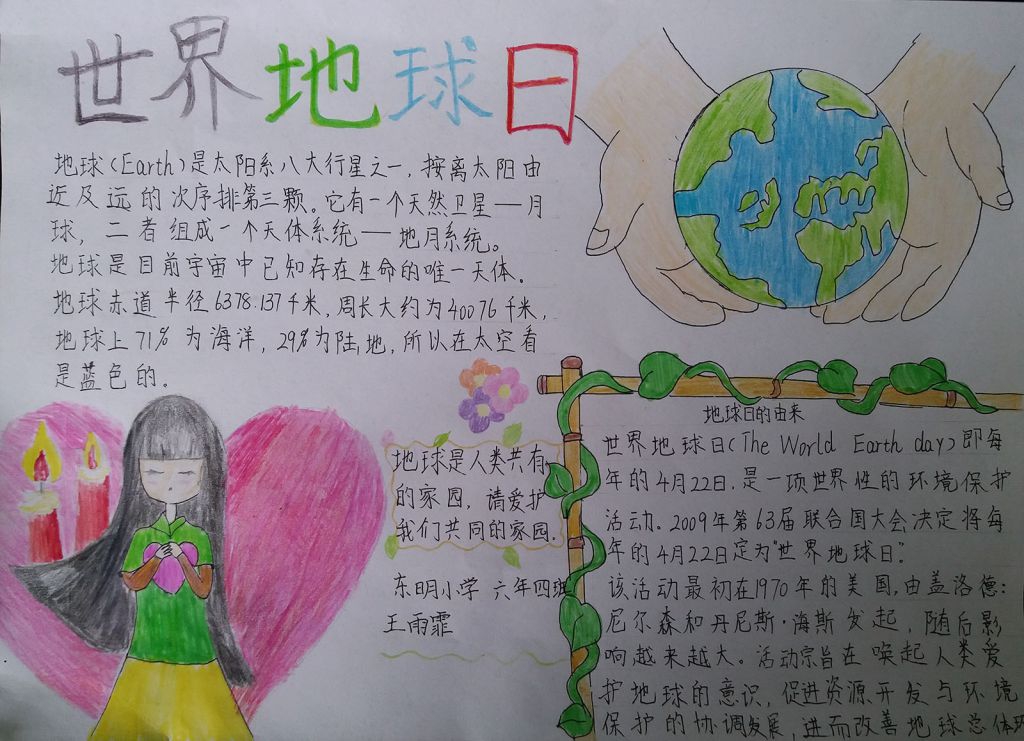 世界地球日
地球(Earth)是太阳系八大行星之一,按离太阳由
近及远的次序排第三颗。它有一个天然卫星—月
球,二者组成一个天体系统—地月系统。
地球是目前宇宙中已知存在生命的唯一天体。
地球赤道半径6378.137千米,周长大约为40076千米,
地球上71%为海洋,29%为陆地,所以在太空看
是蓝色的。
地球是人类共有
的家园,请爱护
我们共同的家园.
东明小学 六年四班
王雨霏
地球日的由来
世界地球日(The World Earth day)即每
年的4月22日.是一项世界性的环境保护
活动.2009年第63届联合国大会决定将每
年的4月22日定为"世界地球日".
该活动最初在1970年的美国,由盖洛德:
尼尔森和丹尼斯·海斯发起,随后影
响越来越大。活动宗旨在唤起人类爱
护地球的意识,促进资源开发与环境
保护的协调发展,进而改善地球总体环